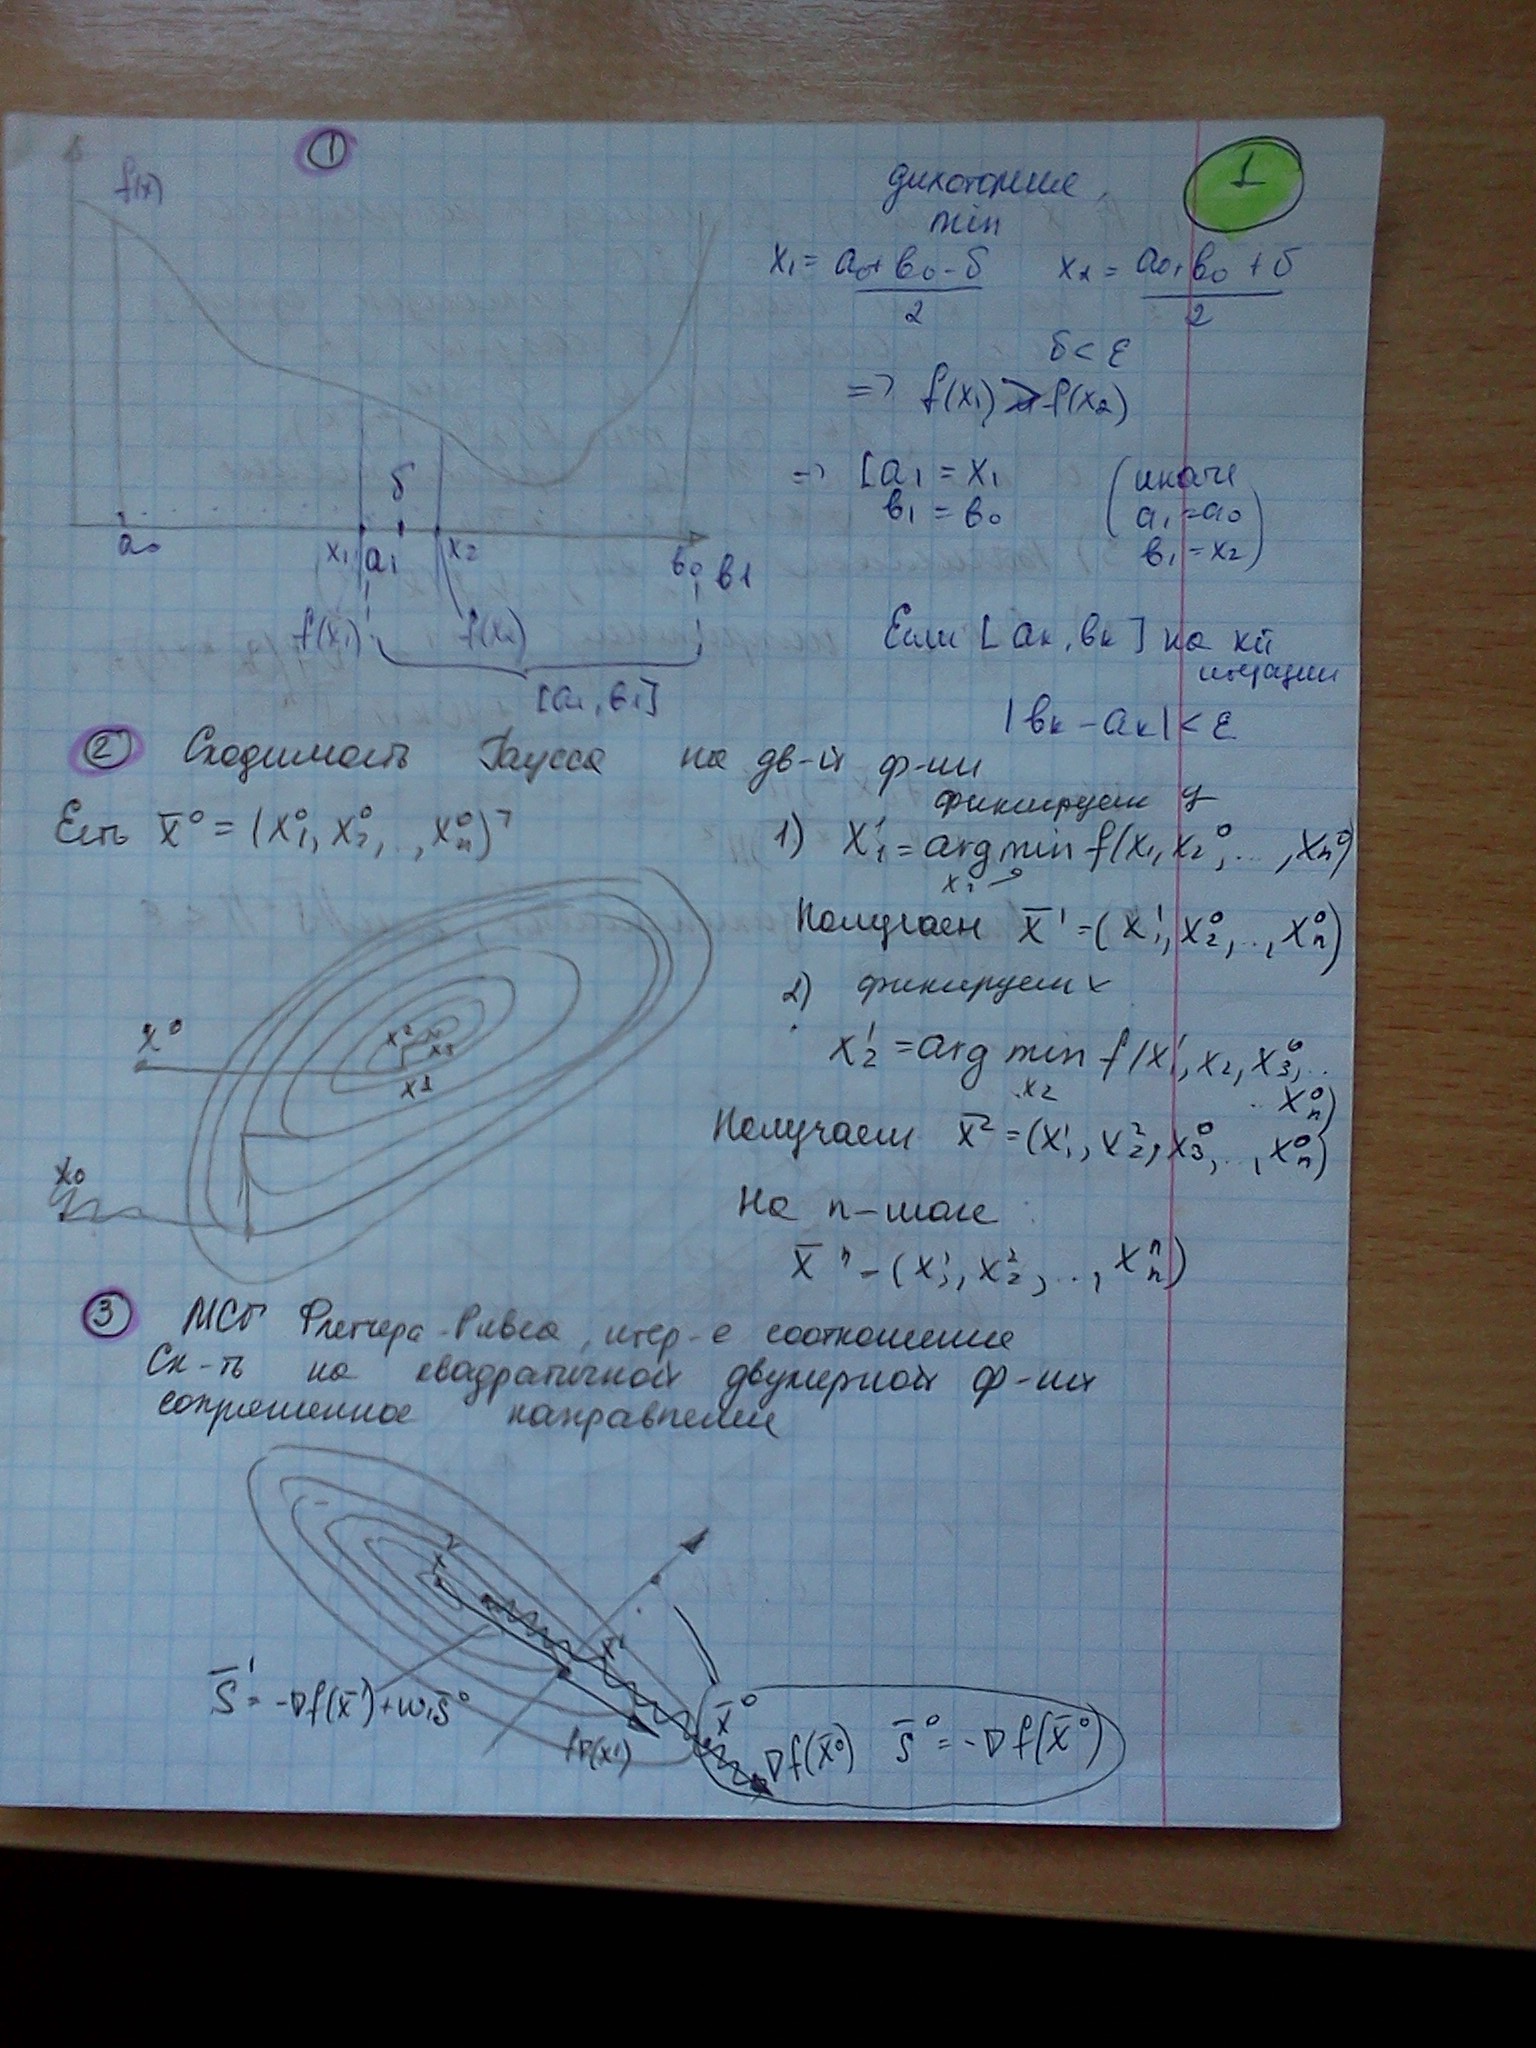 ①
1
f(x)
дихотомие
min
x₁ = a₀+b₀-δ / 2
x₂ = a₀+b₀+δ / 2
δ < ε
=> f(x₁) > f(x₂)
=> [a₁ = x₁
b₁ = b₀
(иначе
a₁ = a₀
b₁ = x₂)
δ
a₀ x₁ a₁ x₂ b₀ b1
f(x₁) f(x₂)
[a₁, b₁]
Если [aₖ, bₖ] на кй
итерации
|bₖ - aₖ| < ε
② Сходимость Гаусса на дв-й ф-ии
Есть x̄⁰ = (x₁⁰, x₂⁰, .., xₙ⁰)ᵀ
фиксируем y
1) x₁¹ = arg min f(x₁, x₂⁰, ..., xₙ⁰)
x₁
Получаем x̄¹ = (x₁¹, x₂⁰, .., xₙ⁰)
2) фиксируем x
x₂¹ = arg min f(x₁¹, x₂, x₃⁰, ..
x₂
.. xₙ⁰)
Получаем x̄² = (x₁¹, x₂², x₃⁰, .., xₙ⁰)
На n-шаге
x̄ⁿ - (x₁¹, x₂², .., xₙⁿ)
x⁰
x² x₃
x1
x₀
③ МСГ Флетчера-Ривса, итер-е соотношение
Сх-ть на квадратичной двумерной ф-ии
сопряженное направление
x²
x¹
S̄¹ = -∇f(x̄¹)+w₁s̄⁰
f∇(x¹)
x̄⁰
∇f(x̄⁰) S̄⁰ = -∇f(x̄⁰)